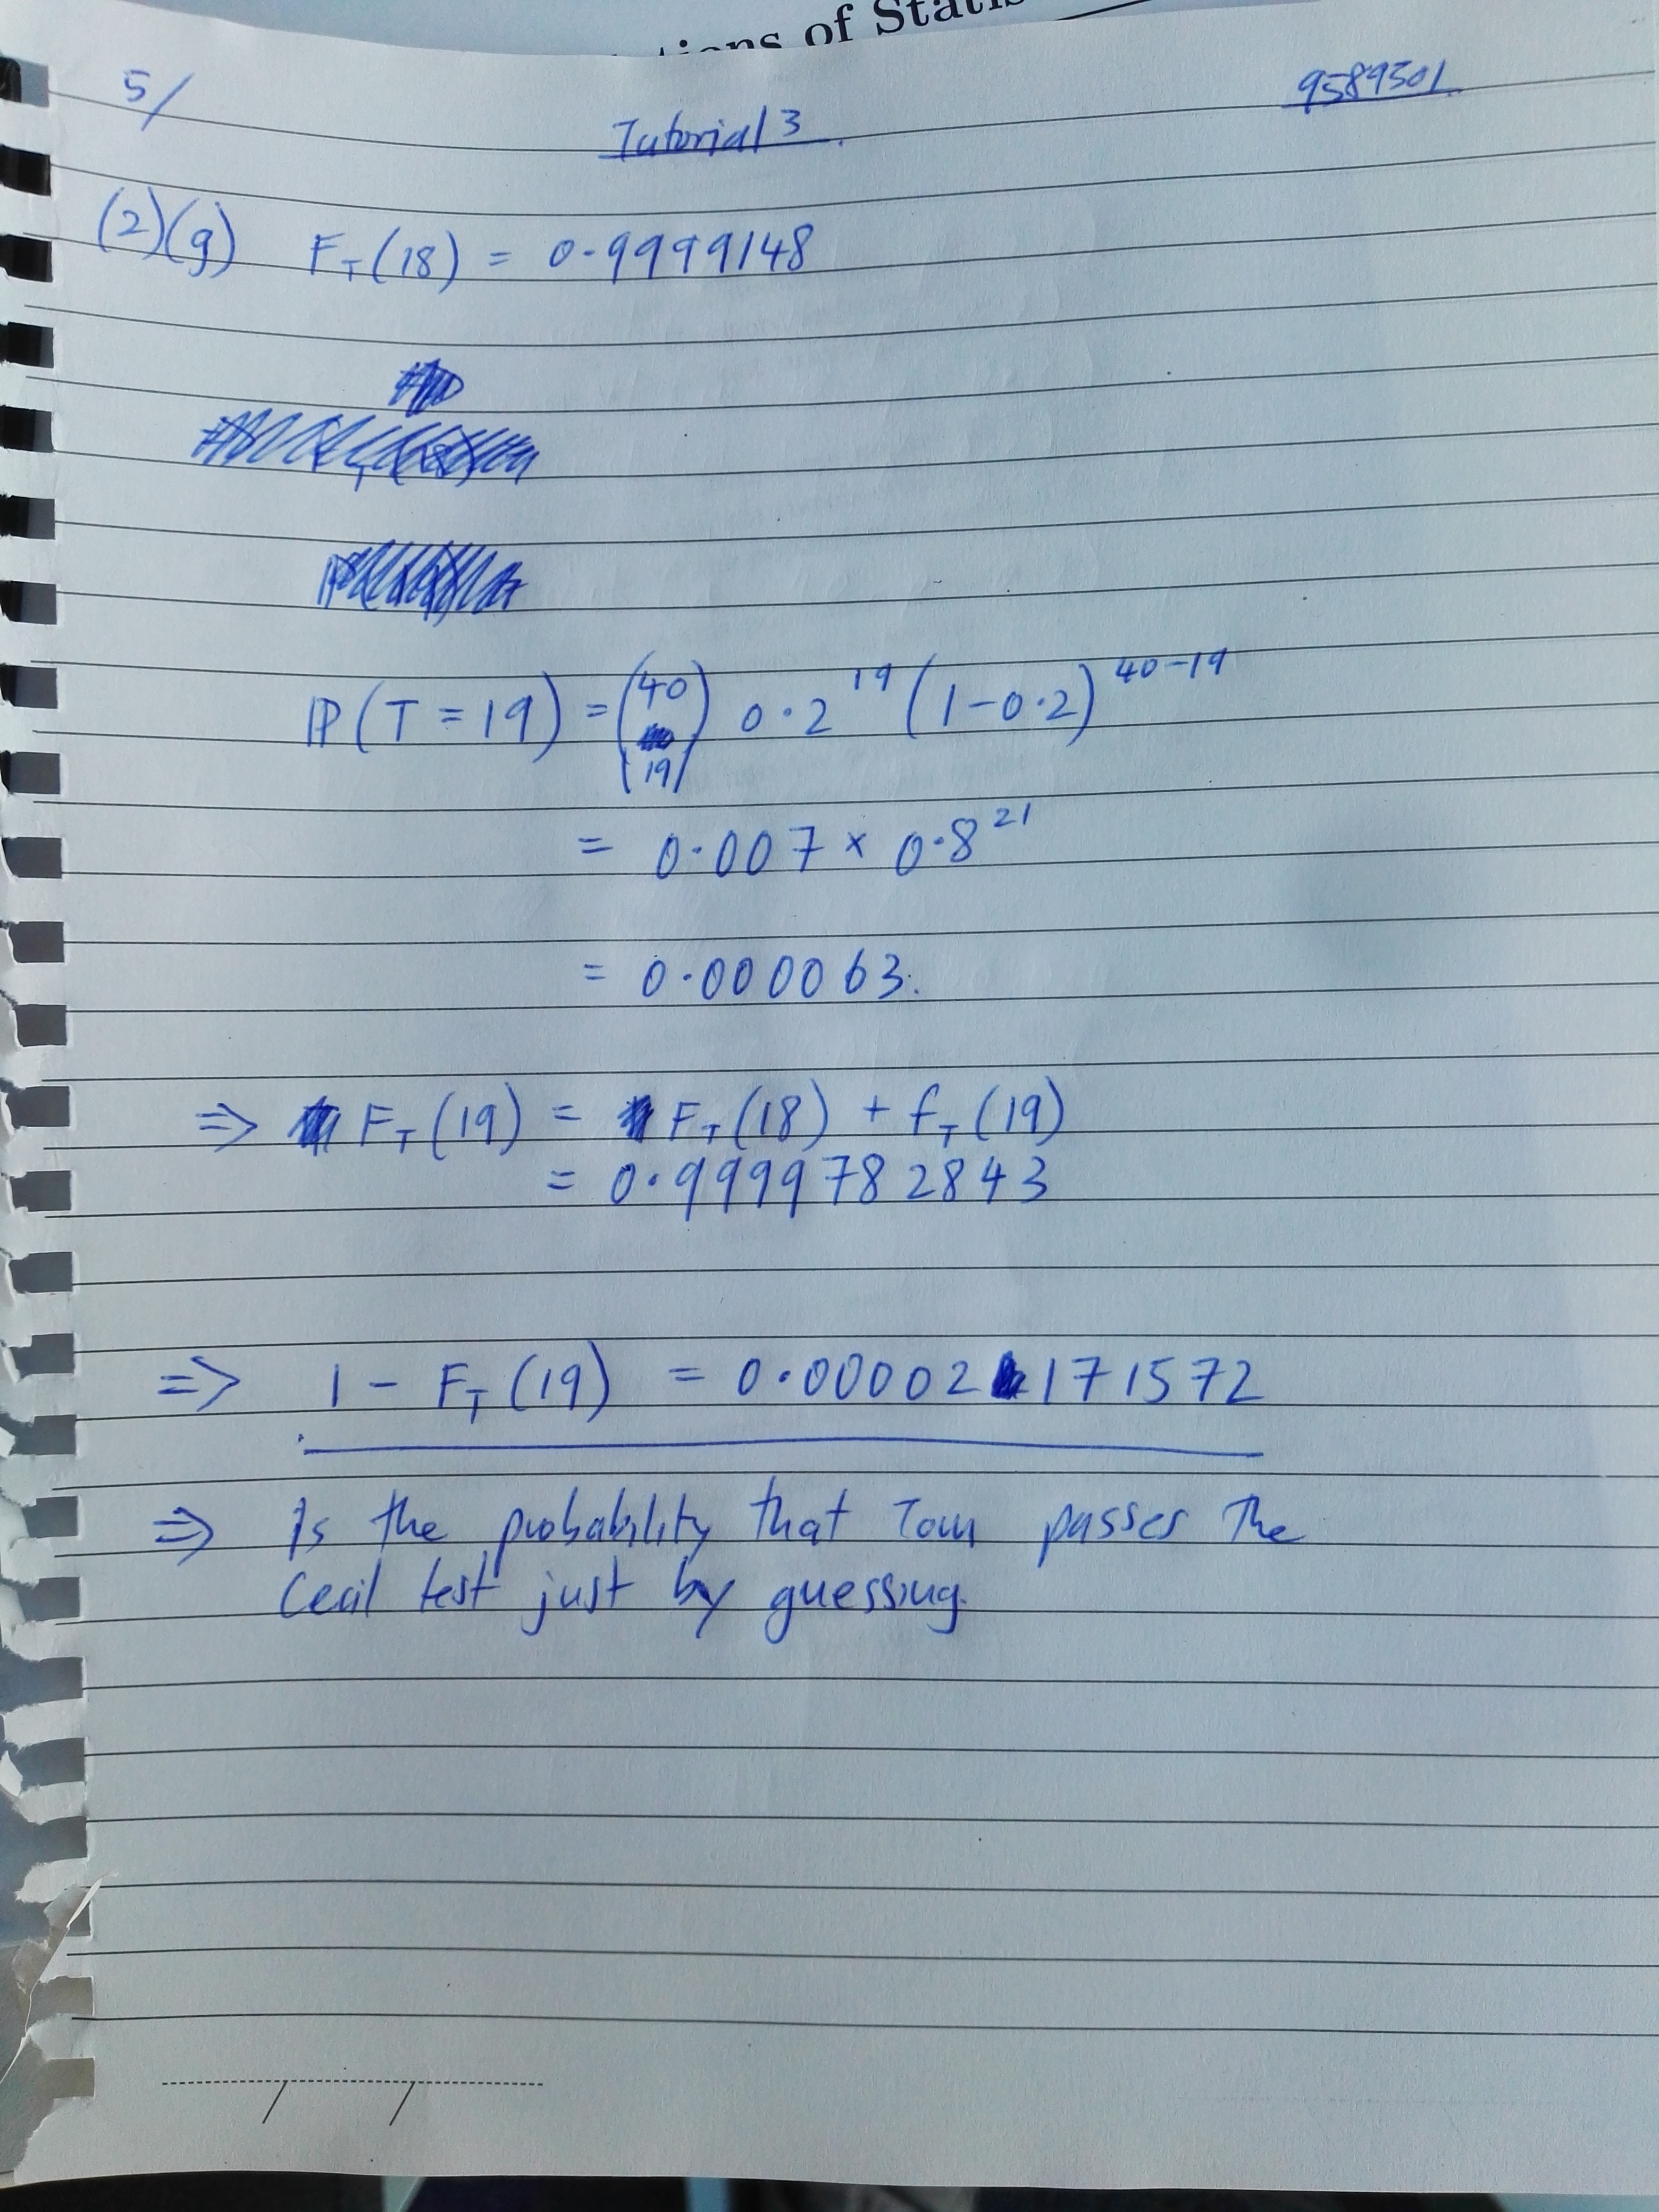 tions of Statis
5/
9589301
Tutorial 3
(2)(g) F_T(18) = 0.9999148
ℙ(T = 19) = (40 19) 0.2^19 (1-0.2)^40-19
= 0.007 × 0.8^21
= 0.000063.
⇒ F_T(19) = F_T(18) + f_T(19)
= 0.9999782843
⇒ 1 - F_T(19) = 0.00002171572
⇒ is the probability that Tom passes the
Cecil test just by guessing.